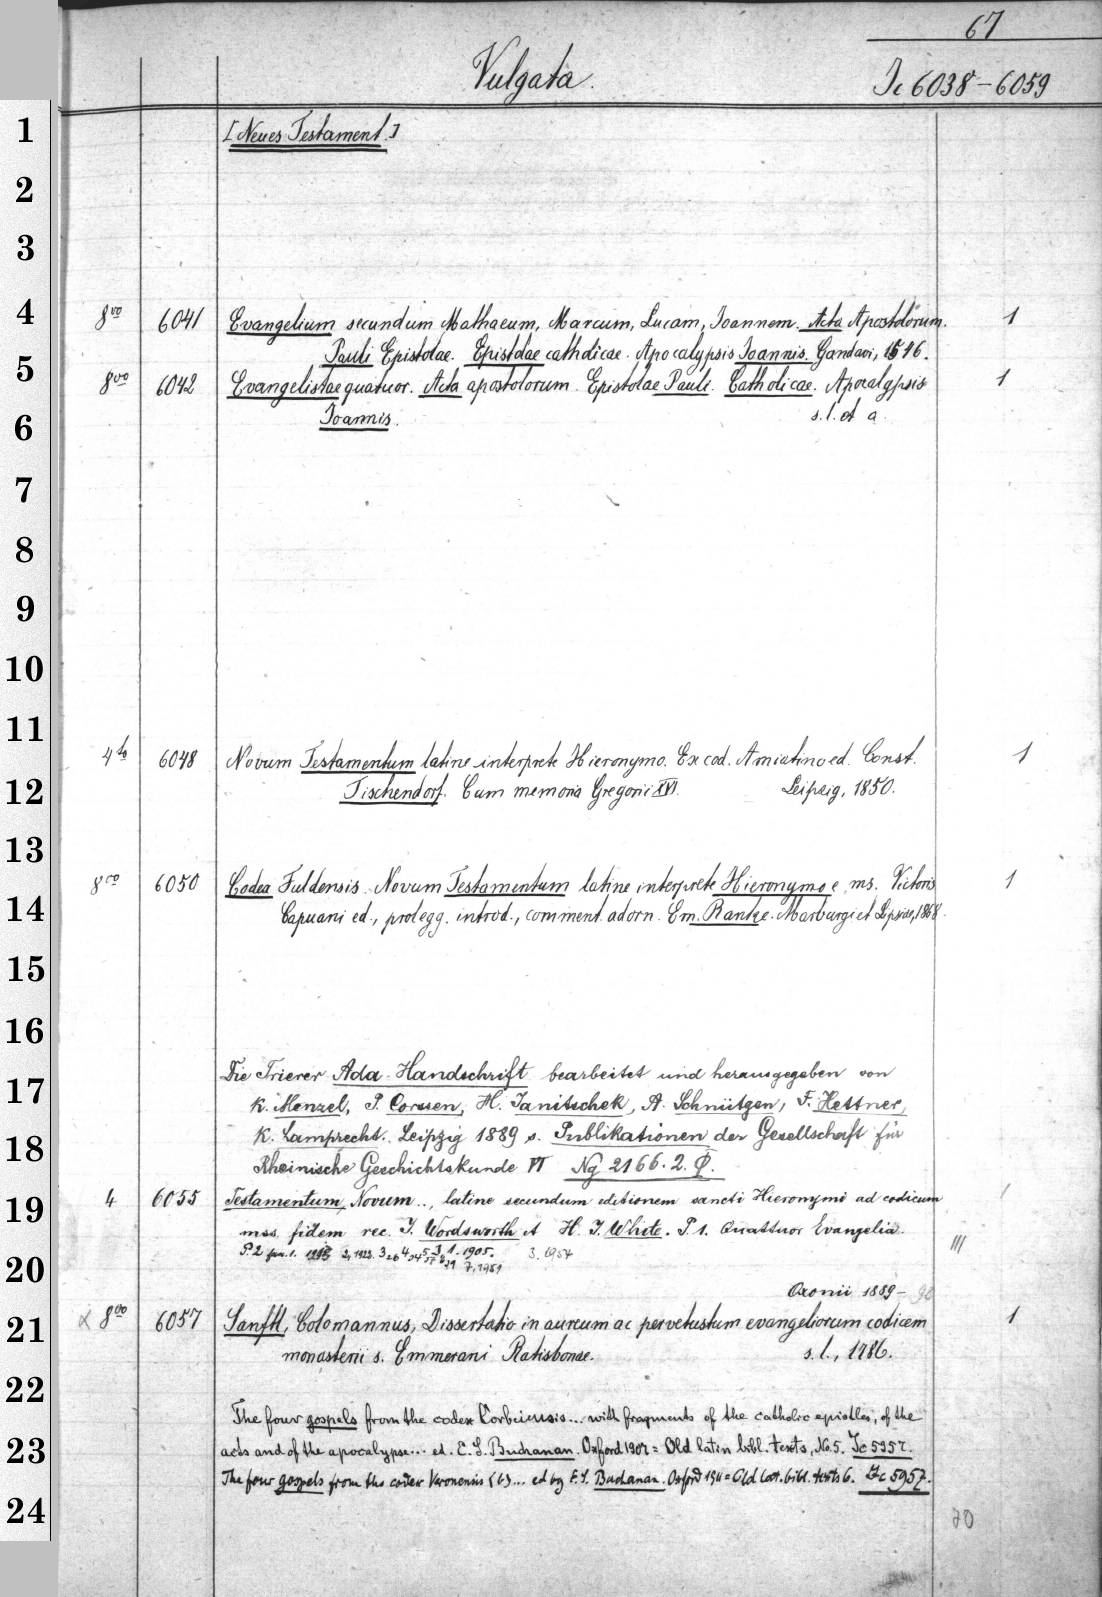 67
Vulgata.
Jc 6038-6059
1
[Neues Testament.]
2
3
4
8vo 6041 Evangelium secundum Mathaeum, Marcum, Lucam, Joannem. Acta Apostolorum. 1
Pauli Epistolae. Epistolae catholicae. Apocalypsis Joannis. Gandavi, 1546.
5
8vo 6042 Evangelistae quatuor. Acta apostolorum. Epistolae Pauli. Catholicae. Apocalypsis 1
6
Joannis. s. l. et a.
7
8
9
10
11
4to 6048 Novum Testamentum latine interprete Hieronymo. Ex cod. Amiatino ed. Const. 1
12
Tischendorf. Cum memoria Gregorii XVI. Leipzig, 1850.
13
8vo 6050 Codex Fuldensis. Novum Testamentum latine interprete Hieronymo e ms. Victoris 1
14
Capuani ed., prolegg. introd., comment. adorn. Em. Ranke. Marburgi et Lipsiae, 1868.
15
16
Die Trierer Ada-Handschrift bearbeitet und herausgegeben von
17
K. Menzel, P. Corssen, H. Janitschek, A. Schnütgen, F. Hettner,
18
K. Lamprecht. Leipzig 1889 s. Publikationen der Gesellschaft für
Rheinische Geschichtskunde VI Ng 2166.2.Φ.
19
4 6055 Testamentum, Novum.., latine secundum editionem sancti Hieronymi ad codicum 1
mss. fidem rec. J. Wordsworth et H. J. White. P 1. Quattuor Evangelia. III
20
P. 2 fasc. 1. 2, 1922. 3 26 4 34 5 37 6 39 7, 1951 3, 1. 1905. 3. 1954
Oxonii 1889-98
21
α 8vo 6057 Sanftl, Colomannus, Dissertatio in aureum ac pervetustum evangeliorum codicem 1
monasterii s. Emmerani Ratisbonae. s. l., 1786.
22
The four gospels from the codex Corbeiensis... with fragments of the catholic epistles, of the
23
acts and of the apocalypse... ed. E. S. Buchanan. Oxford 1907 = Old latin bibl. texts, No. 5. Jc 5957.
The four gospels from the codex Veronensis (b)... ed by E. S. Buchanan. Oxford 1911 = Old Lat. bibl. texts 6. Jc 5957.
24
20